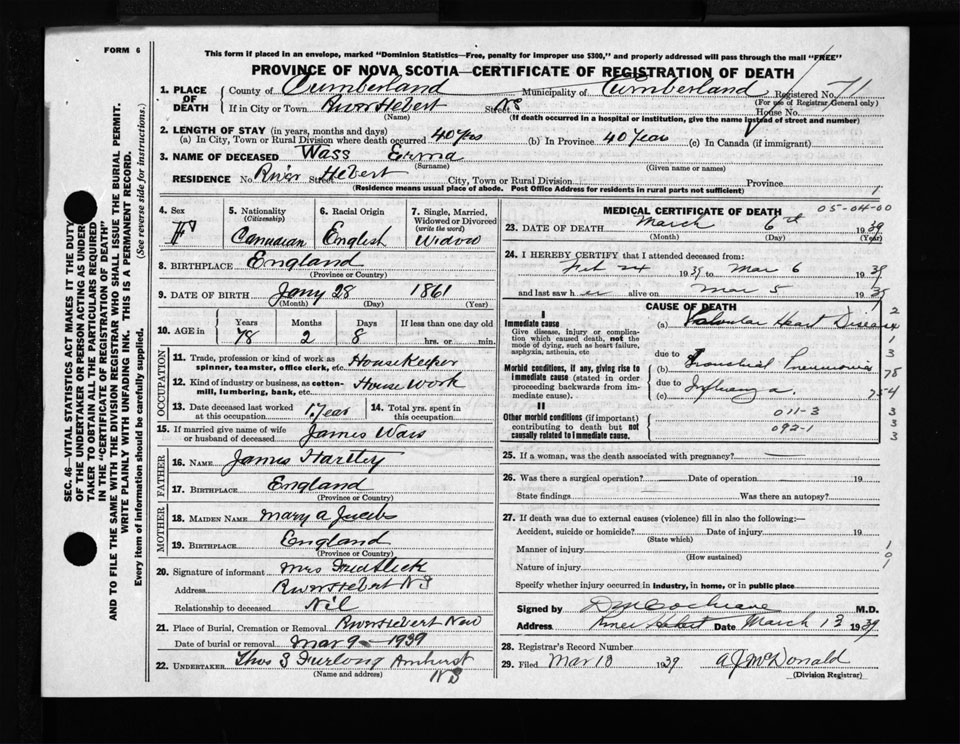 FORM 6
This form if placed in an envelope, marked "Dominion Statistics—Free, penalty for improper use $300," and properly addressed will pass through the mail "FREE"
PROVINCE OF NOVA SCOTIA—CERTIFICATE OF REGISTRATION OF DEATH
1. PLACE OF DEATH County of Cumberland Municipality of Cumberland Registered No. 71
(For use of Registrar General only)
If in City or Town River Hebert Street NS House No.
(Name) (If death occurred in a hospital or institution, give the name instead of street and number)
2. LENGTH OF STAY (in years, months and days)
(a) In City, Town or Rural Division where death occurred 40 yrs (b) In Province 40 Years (c) In Canada (if immigrant)
3. NAME OF DECEASED Wass Erma
(Surname) (Given name or names)
RESIDENCE No. River Street Hebert City, Town or Rural Division Province
(Residence means usual place of abode. Post Office Address for residents in rural parts not sufficient) 1
4. Sex F
5. Nationality (Citizenship) Canadian
6. Racial Origin English
7. Single, Married, Widowed or Divorced (write the word) Widow
8. BIRTHPLACE England
(Province or Country)
9. DATE OF BIRTH Jany 28 1861
(Month) (Day) (Year)
10. AGE in Years Months Days If less than one day old
78 2 8 hrs. or min.
OCCUPATION
11. Trade, profession or kind of work as spinner, teamster, office clerk, etc. Housekeeper
12. Kind of industry or business, as cotton-mill, lumbering, bank, etc. House Work
13. Date deceased last worked at this occupation 1 Year
14. Total yrs. spent in this occupation
15. If married give name of wife or husband of deceased James Wass
FATHER
16. NAME James Hartley
17. BIRTHPLACE England
(Province or Country)
MOTHER
18. MAIDEN NAME Mary A Jacobs
19. BIRTHPLACE England
(Province or Country)
20. Signature of informant Mrs
Address River Hebert NS
Relationship to deceased Nil
21. Place of Burial, Cremation or Removal River Hebert New
Date of burial or removal Mar 9 - 1939
22. UNDERTAKER Thos S Furlong Amherst
(Name and address) NS
MEDICAL CERTIFICATE OF DEATH 05-04-00
23. DATE OF DEATH March 6th 1939
(Month) (Day) (Year)
24. I HEREBY CERTIFY that I attended deceased from:
Feb 24 1939 to Mar 6 1939
and last saw her alive on Mar 5 1939
CAUSE OF DEATH
I
Immediate cause
Give disease, injury or complication which caused death, not the mode of dying, such as heart failure, asphyxia, asthenia, etc
(a) Valvular Heart Disease
Morbid conditions, if any, giving rise to immediate cause (stated in order proceeding backwards from immediate cause).
due to
(b) Bronchial Pneumonia
due to
(c) Influenza
II
Other morbid conditions (if important) contributing to death but not causally related to immediate cause.
011-3
092-1
25. If a woman, was the death associated with pregnancy?
26. Was there a surgical operation? Date of operation 19
State findings Was there an autopsy?
27. If death was due to external causes (violence) fill in also the following:—
Accident, suicide or homicide? Date of injury 19
(State which)
Manner of injury
(How sustained)
Nature of injury
Specify whether injury occurred in industry, in home, or in public place
Signed by D M Cochrane M.D.
Address River Hebert Date March 13 1939
28. Registrar's Record Number
29. Filed Mar 13 1939 A J McDonald
(Division Registrar)
SEC. 46—VITAL STATISTICS ACT MAKES IT THE DUTY
OF THE UNDERTAKER OR PERSON ACTING AS UNDER-
TAKER TO OBTAIN ALL THE PARTICULARS REQUIRED
IN THE "CERTIFICATE OF REGISTRATION OF DEATH"
AND TO FILE THE SAME WITH THE DIVISION REGISTRAR WHO SHALL ISSUE THE BURIAL PERMIT.
WRITE PLAINLY WITH UNFADING INK. THIS IS A PERMANENT RECORD.
Every item of information should be carefully supplied. (See reverse side for instructions.)